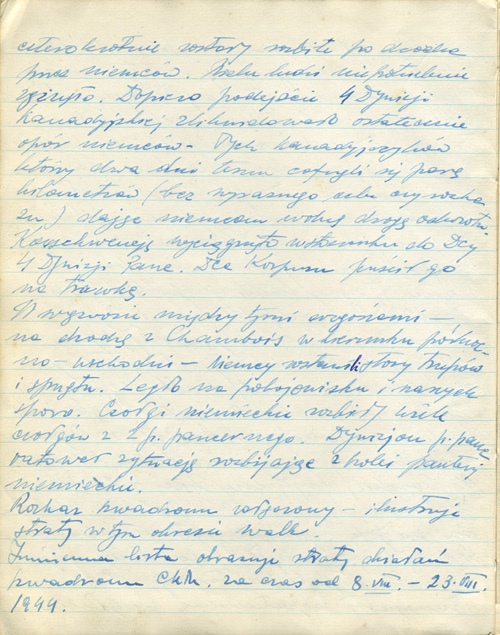 czterokrotnie zostały rozbite po drodze
przez niemców. Wielu ludzi niepotrzebnie
zginęło. Dopiero podejście 4 Dywizji
Kanadyjskiej zlikwidowało ostatecznie
opór niemców - Tych kanadyjczyków
którzy dwa dni temu cofnęli się parę
kilometrów (bez wyraźnego celu czy rozka
zu) dając niemcom wolną drogę odwrotu.
Konsekwencję wyciągnięto w stosunku do Dcy
4 Dywizji Panc. Dca Korpusu puścił go
na trawkę.
W wąwozie między tymi wzgórzami -
na drodze z Chambois w kierunku półno-
no - wschodni - niemcy zostawili stosy trupów
i sprzętu. Legło na pobojowisku i naszych
sporo. Czołgi niemieckie rozbiły wiele
czołgów z 2 p. pancernego. Dywizjon p. panc
ratował sytuację rozbijając z kolei pantery
niemieckie.
Rozkaz szwadronu załączony - ilustruje
straty w tym okresie walk.
Imienna lista obrazuje straty działań
szwadronu CKM. za czas od 8.VIII. - 23.VIII.
1944.